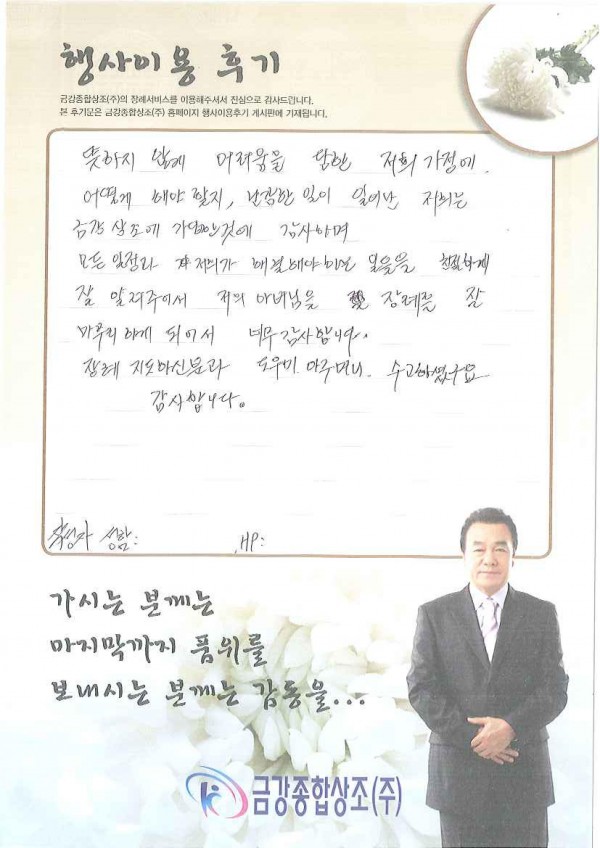 행사이용 후기
금강종합상조(주)의 장례서비스를 이용해주셔서 진심으로 감사드립니다.
본 후기문은 금강종합상조(주) 홈페이지 행사이용후기 게시판에 기재됩니다.
뜻하지 않게 어려움을 당한 저희 가정에.
어떻게 해야 할지, 난감한 일이 일어난 저희는
금강 상조에 가입한것에 감사하며
모든 일정과 저희가 해결해야 일들을 친절하게
잘 알려주어서 저의 아버님을 장례를 잘
마무리 하게 되어서 너무 감사합니다.
장례 지도하신분과 도우미 아주머니. 수고하셨구요
감사합니다.
작성자 성함: ,HP:
가시는 분께는
마지막까지 품위를
보내시는 분께는 감동을...
금강종합상조(주)